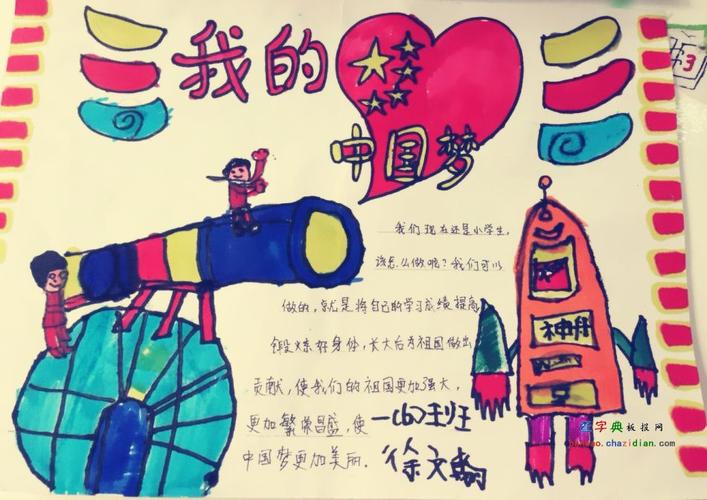 我的
中国梦
我们现在还是小学生,
该怎么做呢?我们可以
做的,就是将自己的学习成绩提高
锻炼好身体,长大后为祖国做出
贡献,使我们的祖国更加强大,
更加繁荣昌盛,使
中国梦更加美丽.
一(6)班
徐文
神舟
号
3
字典 板报网
.chazidian.com